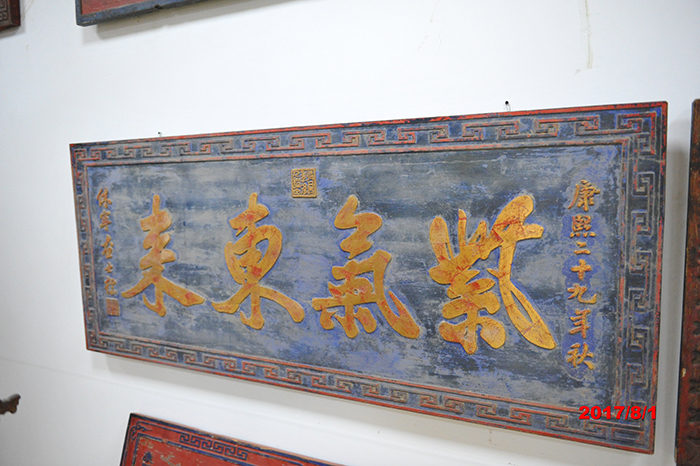 康熙二十九年秋
紫氣東来
2017/8/1